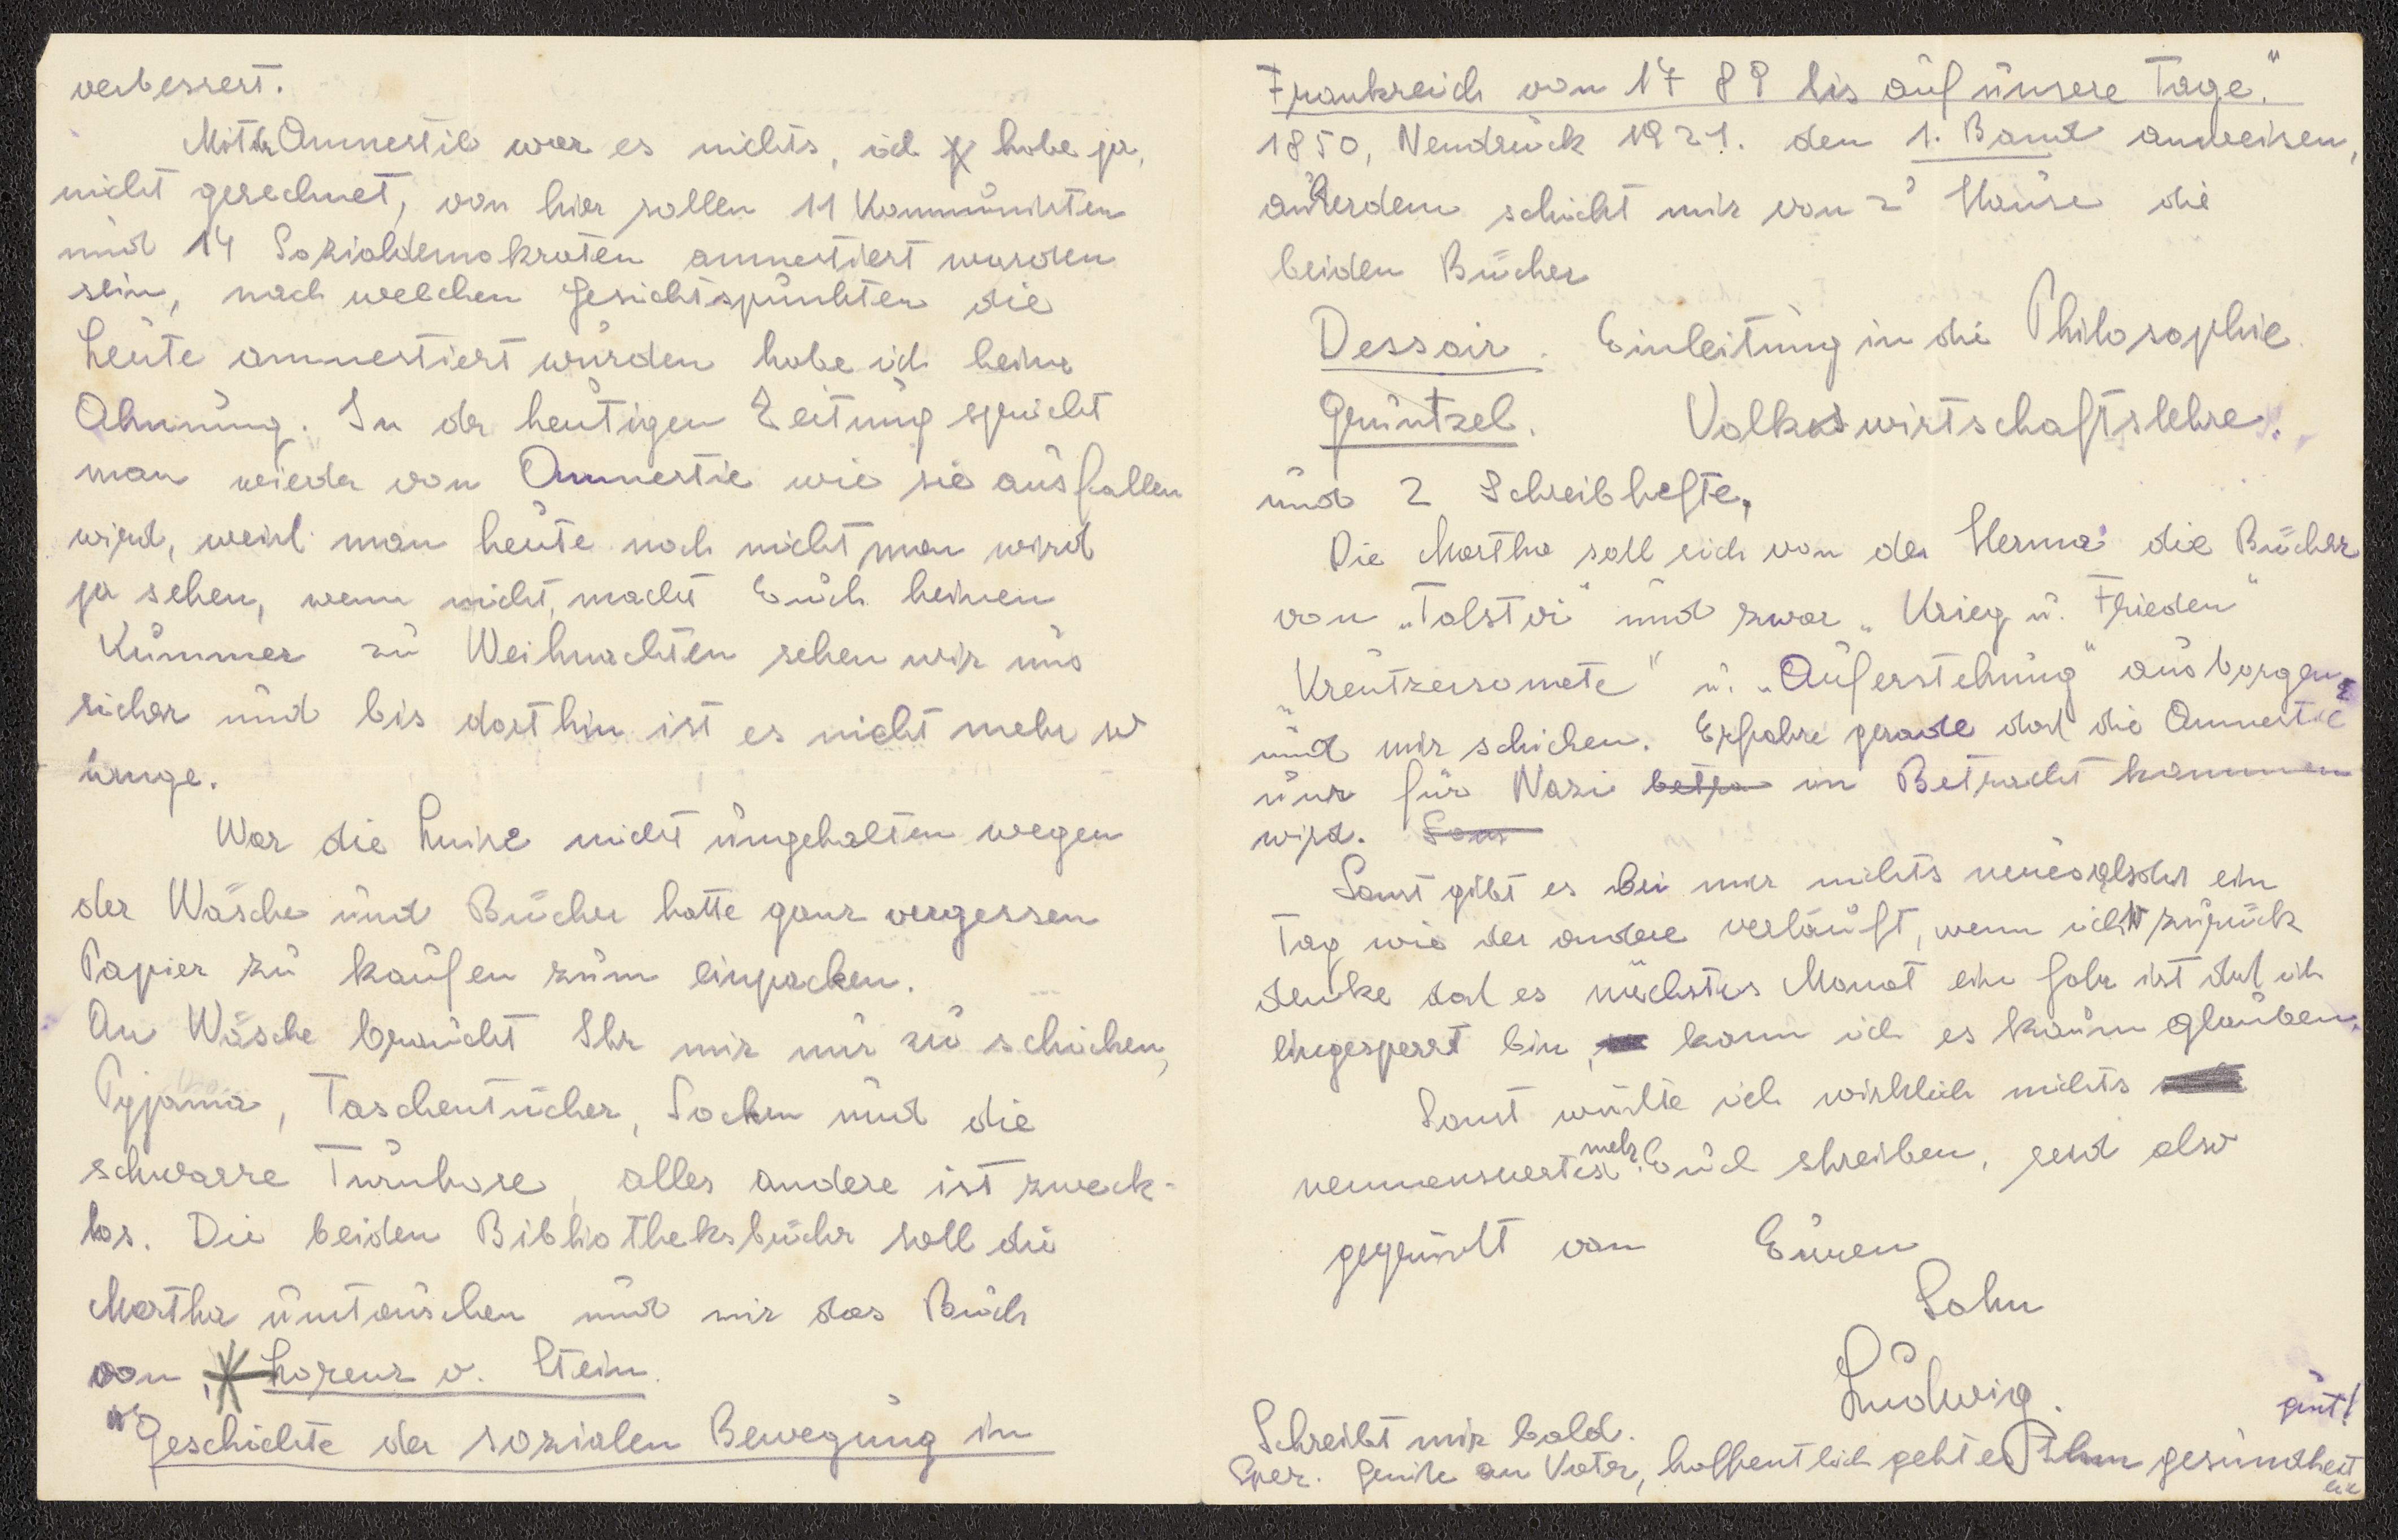 verbessert.
Mit der Amnestie war es nichts, ich habe ja,
nicht gerechnet, von hier sollen 11 Kommunisten
und 14 Sozialdemokraten amnestiert worden
sein, nach welchen Gesichtspunkten die
Leute amnestiert wurden habe ich keine
Ahnung. In der heutigen Zeitung spricht
man wieder von Amnestie wie sie ausfallen
wird, weiß man heute noch nicht man wird
ja sehen, wenn nicht, macht Euch keinen
Kummer zu Weihnachten sehen wir uns
sicher und bis dorthin ist es nicht mehr so
lange.
War die Luise nicht ungehalten wegen
der Wäsche und Bücher hatte ganz vergessen
Papier zu kaufen zum einpacken.
An Wäsche braucht Ihr mir nur zu schicken,
Pyjama, Taschentücher, Socken und die
schwarze Turnhose, alles andere ist zweck-
los. Die beiden Bibliotheksbücher soll die
Martha umtauschen und mir das Buch
von Lorenz v. Stein.
"Geschichte der sozialen Bewegung in
Frankreich von 1789 bis auf unsere Tage."
1850, Neudruck 1921. den 1. Band anweisen,
außerdem schickt mir von z' Hause die
beiden Bücher
Dessoir. Einleitung in die Philosophie.
Gruntzel. Volkswirtschaftslehre.
und 2 Schreibhefte,
Die Martha soll sich von der Herma die Bücher
von „Tolstoi" und zwar „Krieg u. Frieden"
„Kreutzersonate" u. „Auferstehung" ausborgen
und mir schicken. Erfahre gerade daß die Amnestie
nur für Nazi betra in Betracht kommen
wird. Sons
Sonst gibt es bei mir nichts neues als daß ein
Tag wie der andere verläuft, wenn ich so zurück
denke daß es nächstes Monat ein Jahr ist daß ich
eingesperrt bin, kann ich es kaum glauben.
Sonst wüßte ich wirklich nichts
nennenswertes mehr Euch shreiben, seid also
gegrüßt von Euren
Sohn
Ludwig.
Schreibt mir bald.
Spez. Grüße an Vater, hoffentlich geht es Ihm gesundheit
lich
gut!